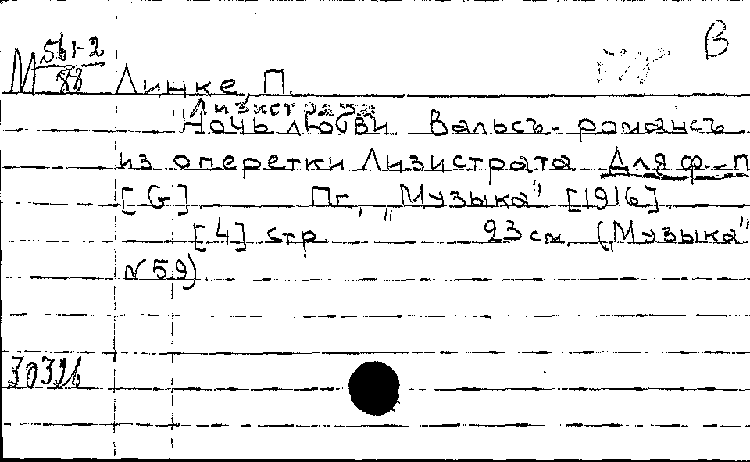 В
М 561-2/88 Линке, П.
Лизистрата
Ночь любви Вальсъ-романсъ
из оперетки Лизистрата Для ф-п
[G] Пг., "Музыка" [1916]
[4] стр 23 см. ("Музыка"
N 59)
30326